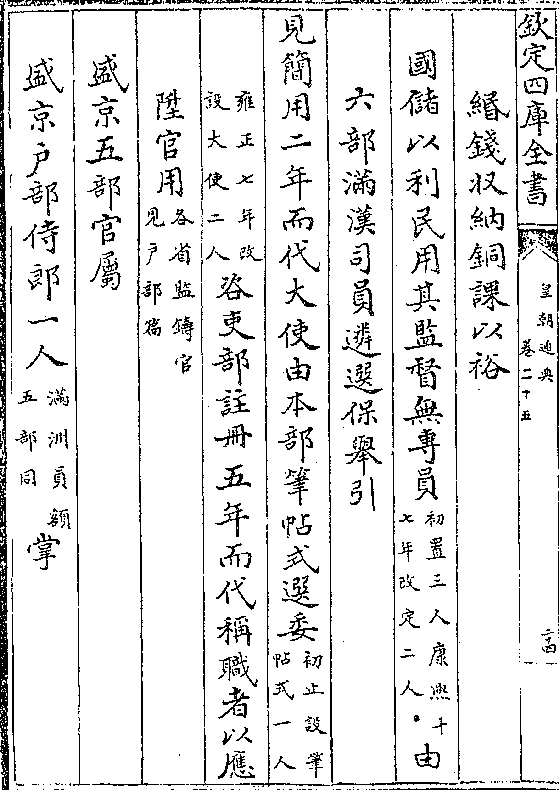 欽定四庫全書
皇朝通典
卷二十五
緡錢收納銅課以裕
國儲以利民用其監督無專員初置三人康熙十七年改定二人。由
六部滿漢司員遴選保舉引
見簡用二年而代大使由本部筆帖式選委初止設筆帖式一人
雍正七年改設大使二人咨吏部註冊五年而代稱職者以應
陞官用各省監鑄官見戶部篇
盛京五部官屬
盛京戶部侍郎一人滿洲員額五部同掌